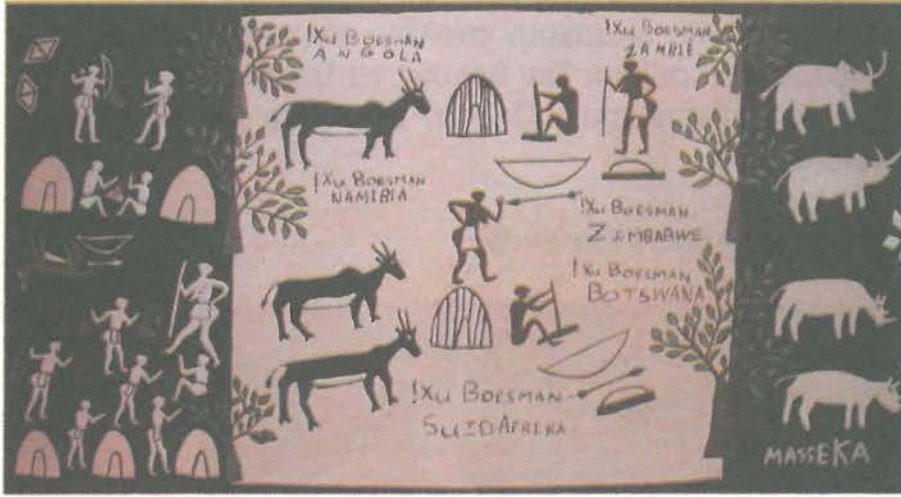 !XU BOESMAN
ANGOLA
!XU BOESMAN
ZAMBIË
!XU BOESMAN
NAMIBIA
!XU BOESMAN
ZIMBABWE
!XU BOESMAN
BOTSWANA
!XU BOESMAN
SUIDAFRIKA
MASSEKA